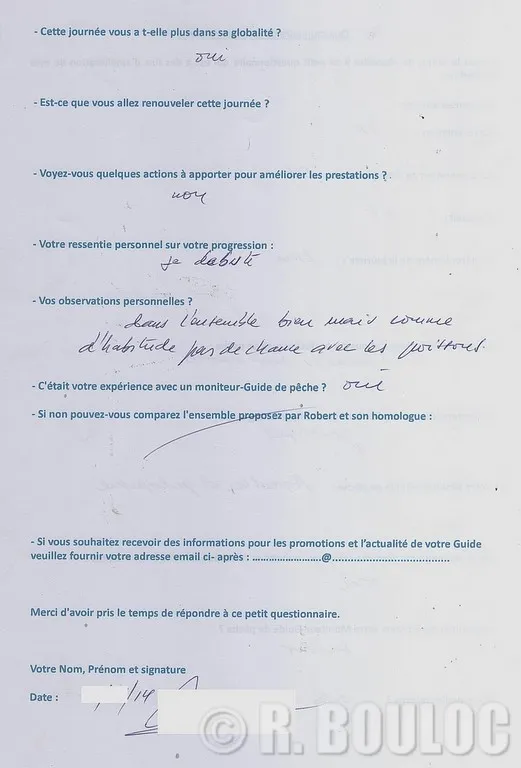 - Cette journée vous a t-elle plus dans sa globalité ?
oui
- Est-ce que vous allez renouveler cette journée ?
- Voyez-vous quelques actions à apporter pour améliorer les prestations ?
non
- Votre ressentie personnel sur votre progression :
je débute
- Vos observations personnelles ?
dans l'ensemble bien mais comme
d'habitude pas de chance avec les poissons.
- C'était votre expérience avec un moniteur-Guide de pêche ? oui
- Si non pouvez-vous comparez l'ensemble proposez par Robert et son homologue :
- Si vous souhaitez recevoir des informations pour les promotions et l'actualité de votre Guide
veuillez fournir votre adresse email ci- après : ........................@......................................
Merci d'avoir pris le temps de répondre à ce petit questionnaire.
Votre Nom, Prénom et signature
Date : /14
© R. BOULOC